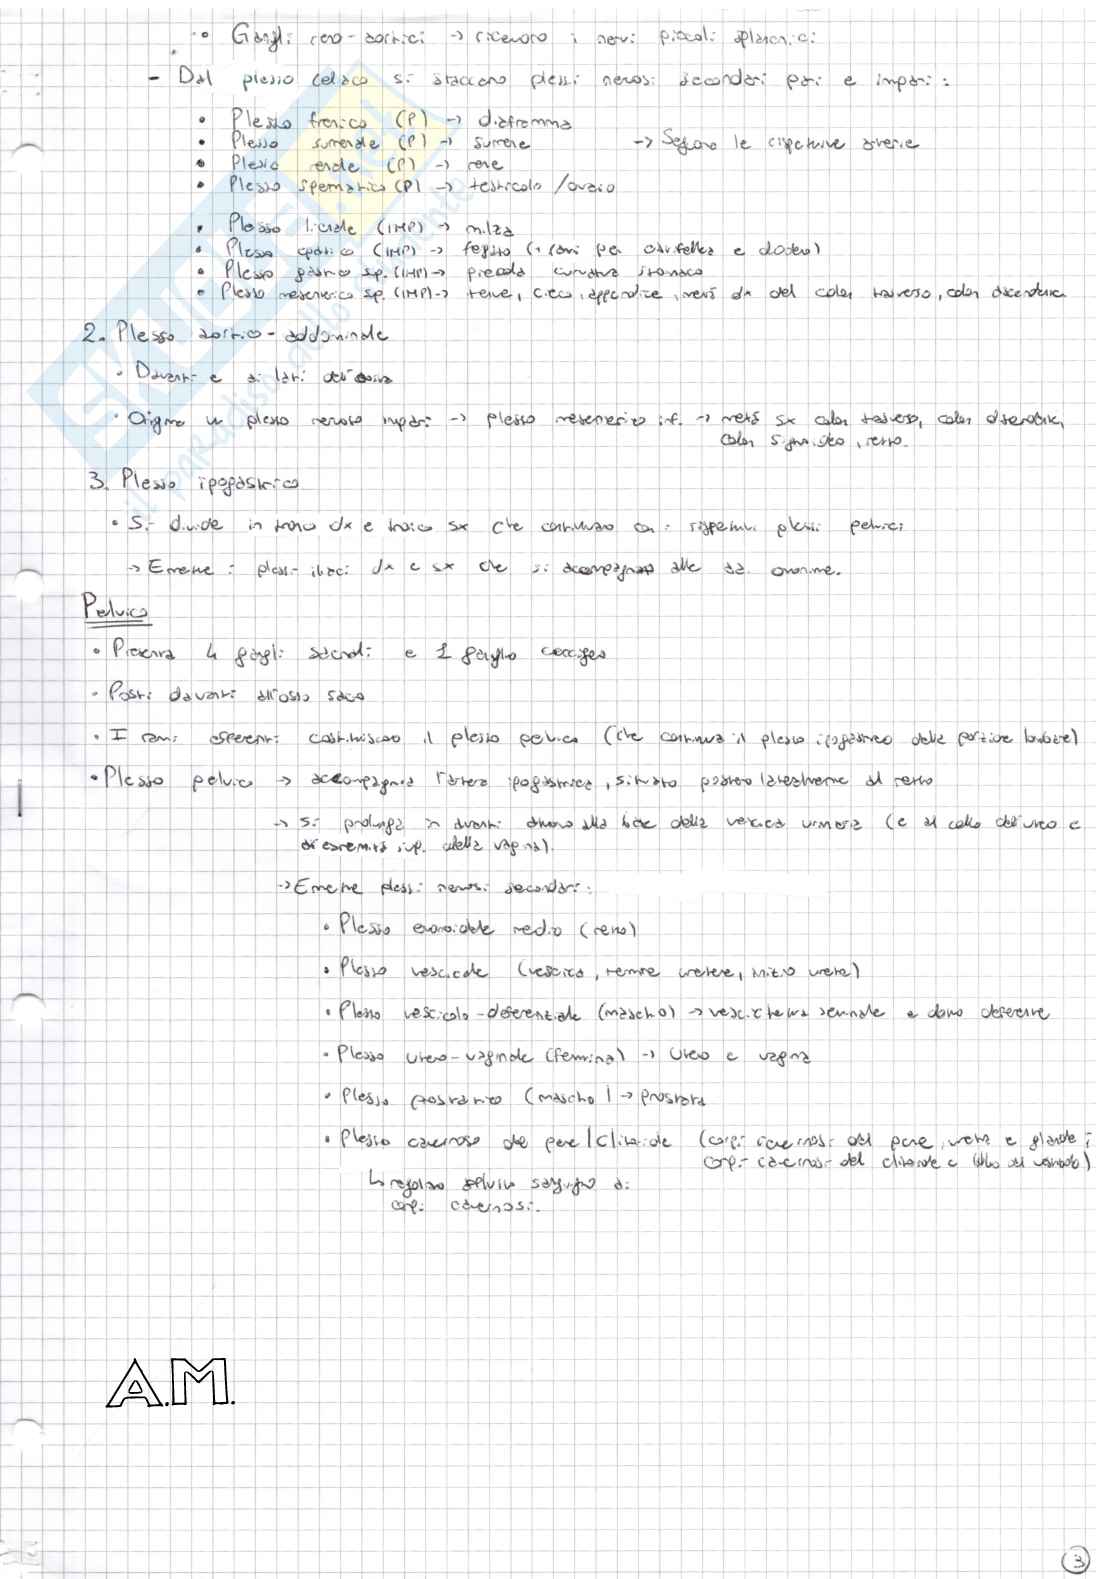 • Gangli reno-aortici → ricevono i nervi piccoli splancnici
- Dal plesso celiaco si staccano plessi nervosi secondari pari e impari:
• Plesso frenico (P) → diaframma
• Plesso surrenale (P) → surrene → Seguono le rispettive arterie
• Plesso renale (P) → rene
• Plesso spermatico (P) → testicolo / ovaio
• Plesso lienale (IMP) → milza
• Plesso epatico (IMP) → fegato (+ rami per cistifellea e duodeno)
• Plesso gastrico sp. (IMP) → piccola curvatura stomaco
• Plesso mesenterico sp. (IMP) → tenue, cieco, appendice, metà dx del colon trasverso, colon ascendente
2. Plesso aortico-addominale
• Davanti e ai lati dell'aorta
• Origina un plesso nervoso impari → plesso mesenterico inf. → metà sx colon trasverso, colon discendente,
colon sigmoideo, retto.
3. Plesso ipogastrico
• Si divide in tronco dx e tronco sx che continuano con i rispettivi plessi pelvici
→ Emette i plessi iliaci dx e sx che si accompagnano alle aa. omonime.
Pelvico
• Presenta 4 gangli sacrali e 1 ganglio coccigeo
• Posti davanti all'osso sacro
• I rami efferenti costituiscono il plesso pelvico (che continua il plesso ipogastrico della porzione lombare)
• Plesso pelvico → accompagna l'arteria ipogastrica, situato posterolateralmente al retto
→ Si prolunga in avanti attorno alla base della vescica urinaria (e al collo dell'utero e
all'estremità sup. della vagina).
→ Emette plessi nervosi secondari:
• Plesso emorroidale medio (retto)
• Plesso vescicale (vescica, termine uretere, inizio uretra)
• Plesso vescicolo-deferenziale (maschio) → vescichetta seminale e dotto deferente
• Plesso utero-vaginale (femmina) → Utero e vagina
• Plesso prostatico (maschio) → prostata
• Plesso cavernoso del pene / Clitoride (corpi cavernosi del pene, uretra e glande;
corpi cavernosi del clitoride e bulbo del vestibolo)
↳ regolano afflusso sanguigno ai
corpi cavernosi.
A.M.
3
SKUOLA.net
il paradiso dello studente